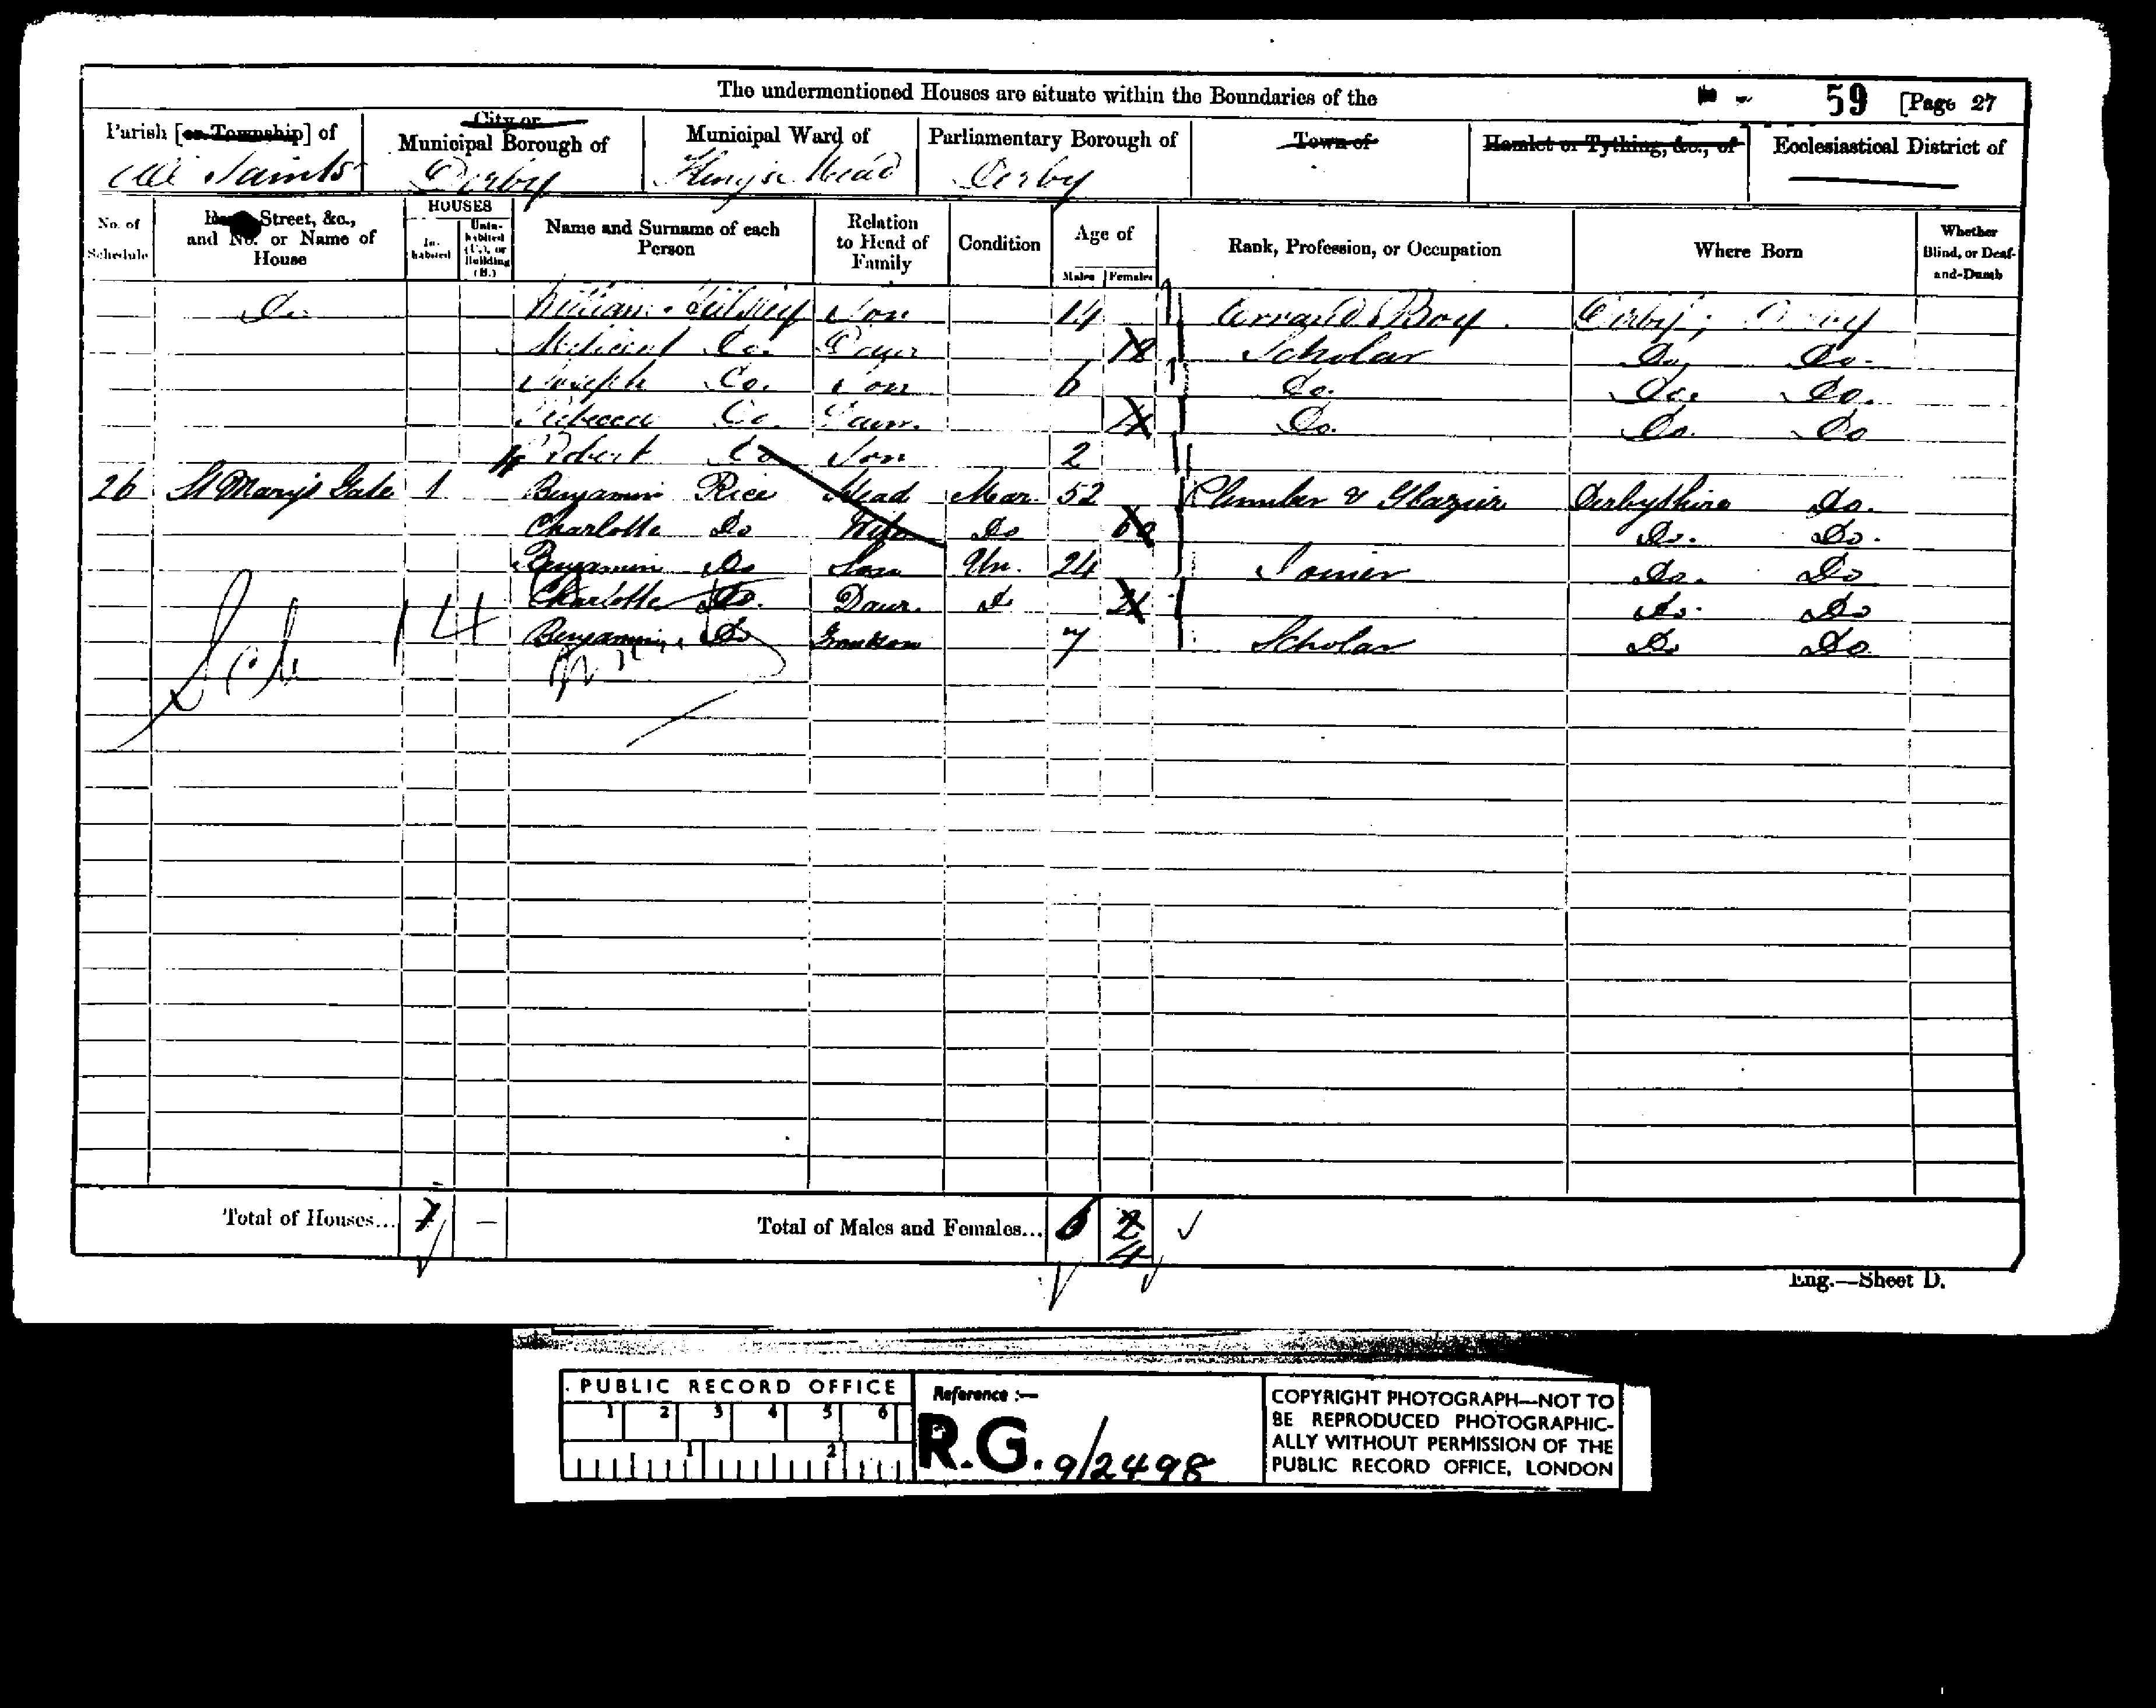 The undermentioned Houses are situate within the Boundaries of the
59 [Page 27
Parish [or Township] of
City or
Municipal Borough of
Municipal Ward of
Parliamentary Borough of
Town of
Hamlet or Tything, &c., of
Ecclesiastical District of
All Saints Derby Kings Mead Derby
No. of Schedule
Street, &c., and No. or Name of House
HOUSES
Inhabited
Uninhabited (U.), or Building (B.)
Name and Surname of each Person
Relation to Head of Family
Condition
Age of
Males Females
Rank, Profession, or Occupation
Where Born
Whether Blind, or Deaf-and-Dumb
Do William Son 14 Errand Boy Derby
Do. Daur Scholar Do. Do.
Joseph Do. Son 6 Do. Do. Do.
Rebecca Do. Daur. Do. Do. Do
Robert Do Son 2
26 St Mary's Gate 1 Benjamin Rice Head Mar. 52 Plumber & Glazier Derbyshire Do.
Charlotte Do Wife Do Do. Do.
Benjamin Do Son Un. 24 Joiner Do. Do
Charlotte Do. Daur. Do Do. Do
Benjamin Do Grandson 7 Scholar Do Do
Total of Houses...
Total of Males and Females... 6 4
Eng.—Sheet D.
PUBLIC RECORD OFFICE
1 2 3 4 5 6
1 2
Reference :—
R.G. 9/2498
COPYRIGHT PHOTOGRAPH—NOT TO
BE REPRODUCED PHOTOGRAPHIC-
ALLY WITHOUT PERMISSION OF THE
PUBLIC RECORD OFFICE, LONDON